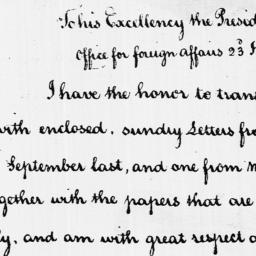 To his Excellency the Presid
Office for foreign Affairs 23d
I have the honor to trans
with enclosed, sundry Letters fr
September last, and one from M
gether with the papers that are
ly, and am with great respect a